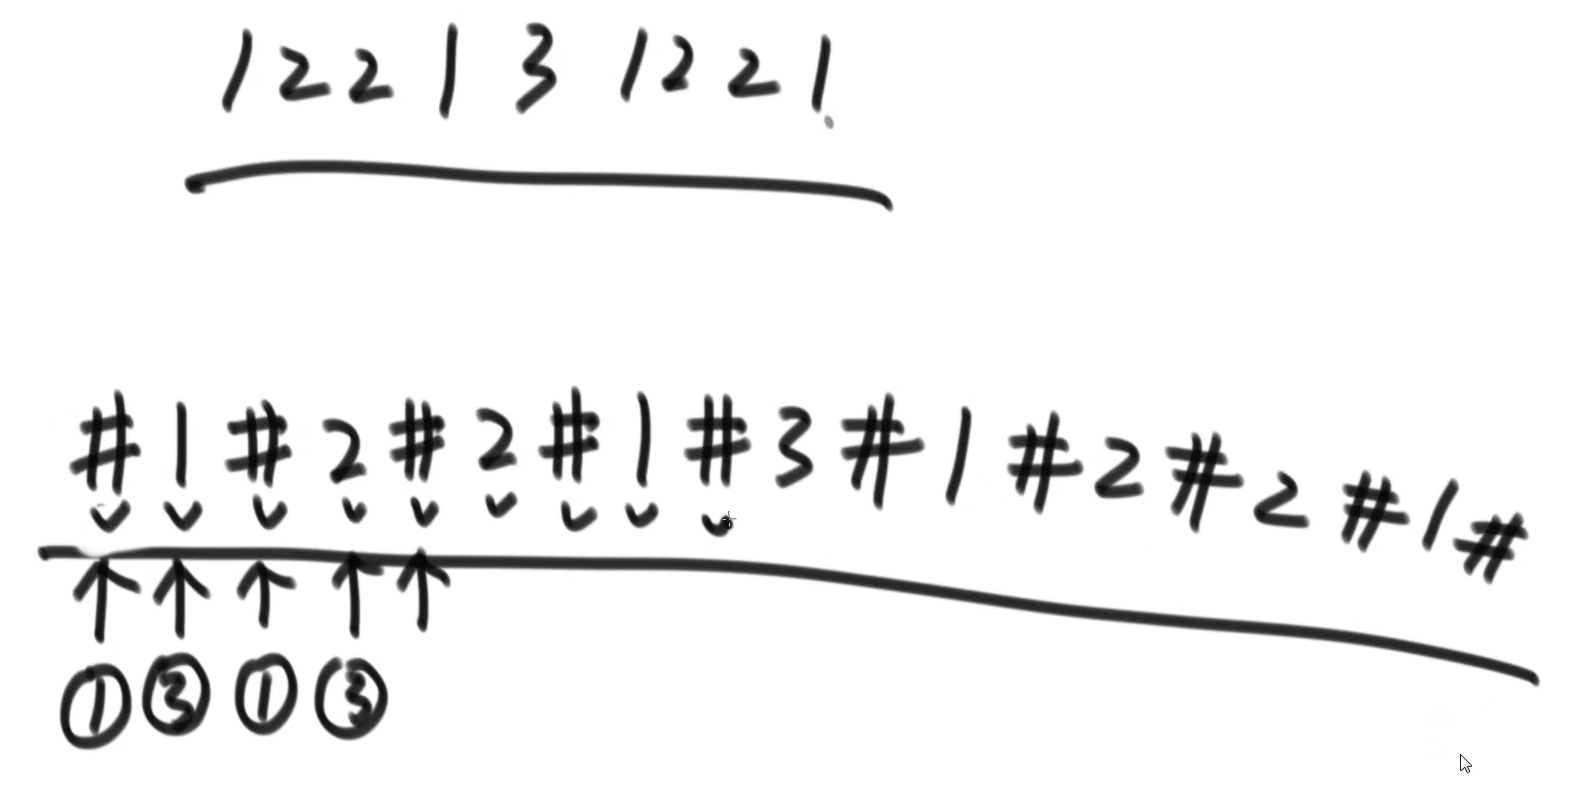 1 2 2 1 3 1 2 2 1
# 1 # 2 # 2 # 1 # 3 # 1 # 2 # 2 # 1 #
① ③ ① ③